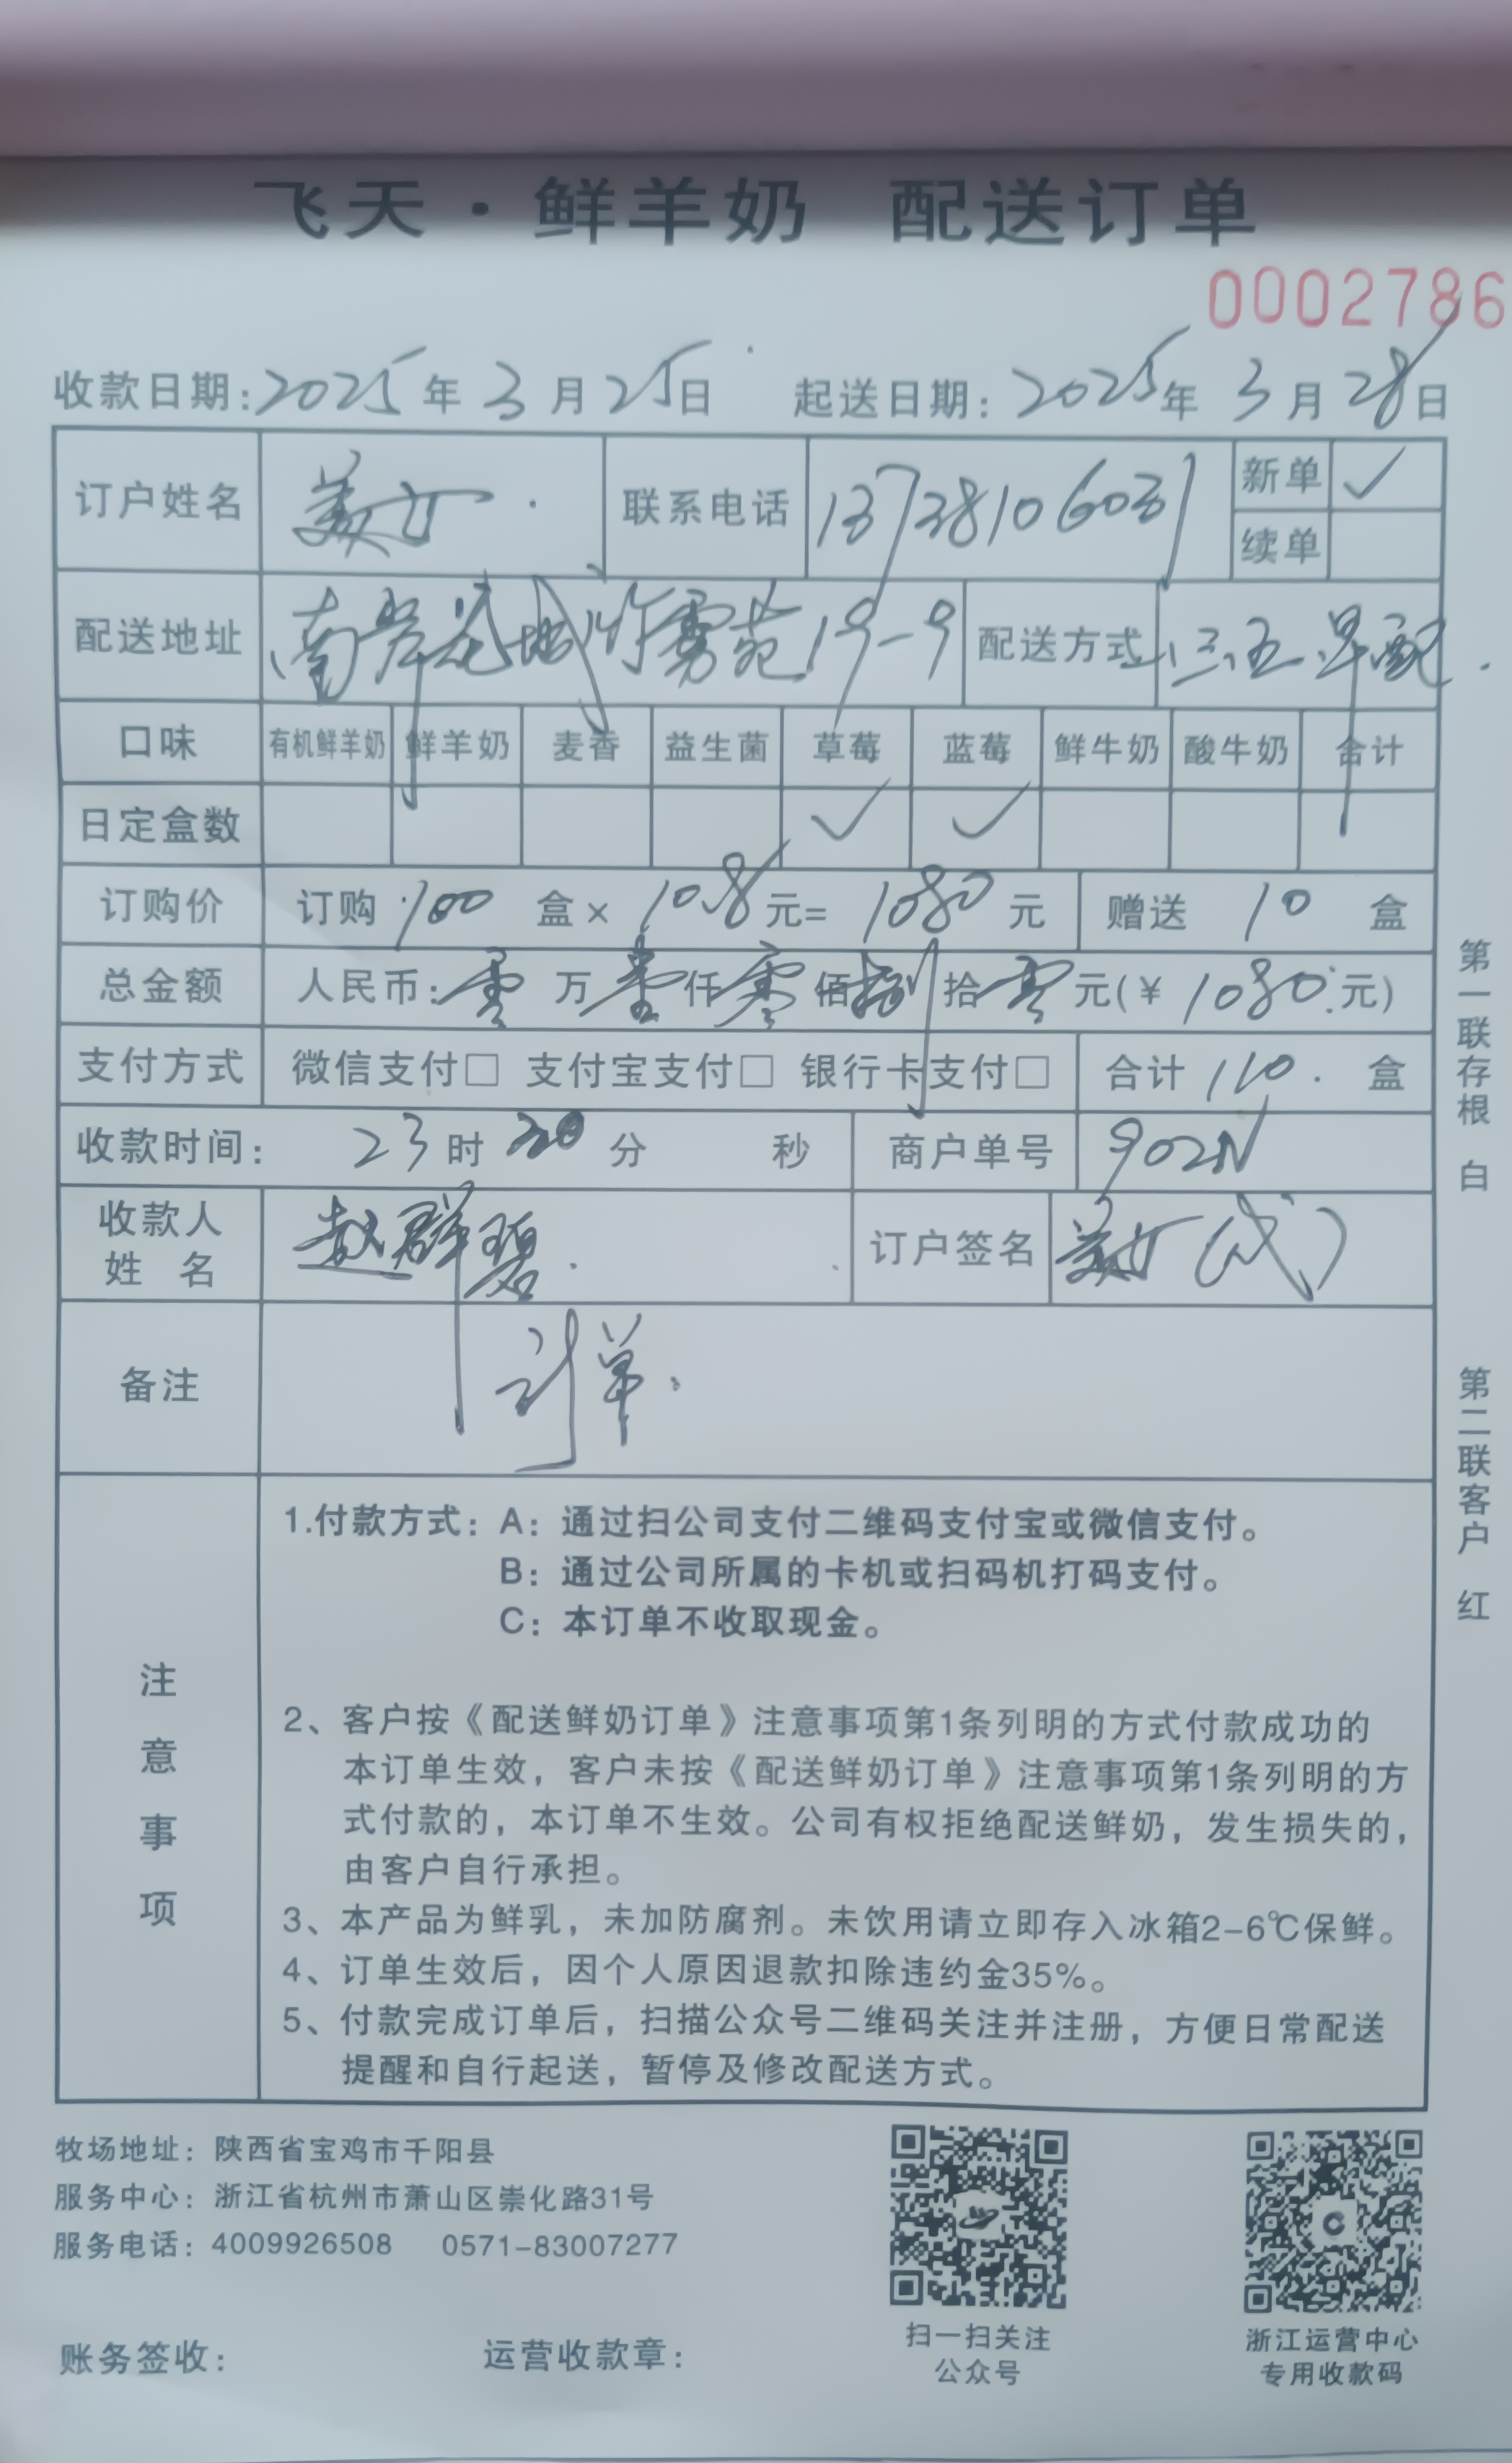 飞天·鲜羊奶 配送订单
0002786
收款日期:2025年3月25日 起送日期:2025年3月28日
订户姓名 姜女 联系电话 13738106031 新单 ✓
续单
配送地址 南岸花城 苑19-9 配送方式 一、三、五、早配
口味 有机鲜羊奶 鲜羊奶 麦香 益生菌 草莓 蓝莓 鲜牛奶 酸牛奶 合计
日定盒数 ✓ ✓
订购价 订购 100 盒× 10.8 元= 1080 元 赠送 10 盒
总金额 人民币:零万壹仟零佰捌拾零元(¥1080元)
支付方式 微信支付□ 支付宝支付□ 银行卡支付□ 合计 110 盒
收款时间: 23时 分 秒 商户单号
收款人姓名 赵群碧 订户签名 姜女(代)
备注 订单
注意事项
1.付款方式:A:通过扫公司支付二维码支付宝或微信支付。
B:通过公司所属的卡机或扫码机打码支付。
C:本订单不收取现金。
2、客户按《配送鲜奶订单》注意事项第1条列明的方式付款成功的
本订单生效,客户未按《配送鲜奶订单》注意事项第1条列明的方
式付款的,本订单不生效。公司有权拒绝配送鲜奶,发生损失的,
由客户自行承担。
3、本产品为鲜乳,未加防腐剂。未饮用请立即存入冰箱2-6℃保鲜。
4、订单生效后,因个人原因退款扣除违约金35%。
5、付款完成订单后,扫描公众号二维码关注并注册,方便日常配送
提醒和自行起送,暂停及修改配送方式。
第一联存根 白
第二联客户 红
牧场地址:陕西省宝鸡市千阳县
服务中心:浙江省杭州市萧山区崇化路31号
服务电话:4009926508 0571-83007277
扫一扫关注
公众号
浙江运营中心
专用收款码
账务签收: 运营收款章: